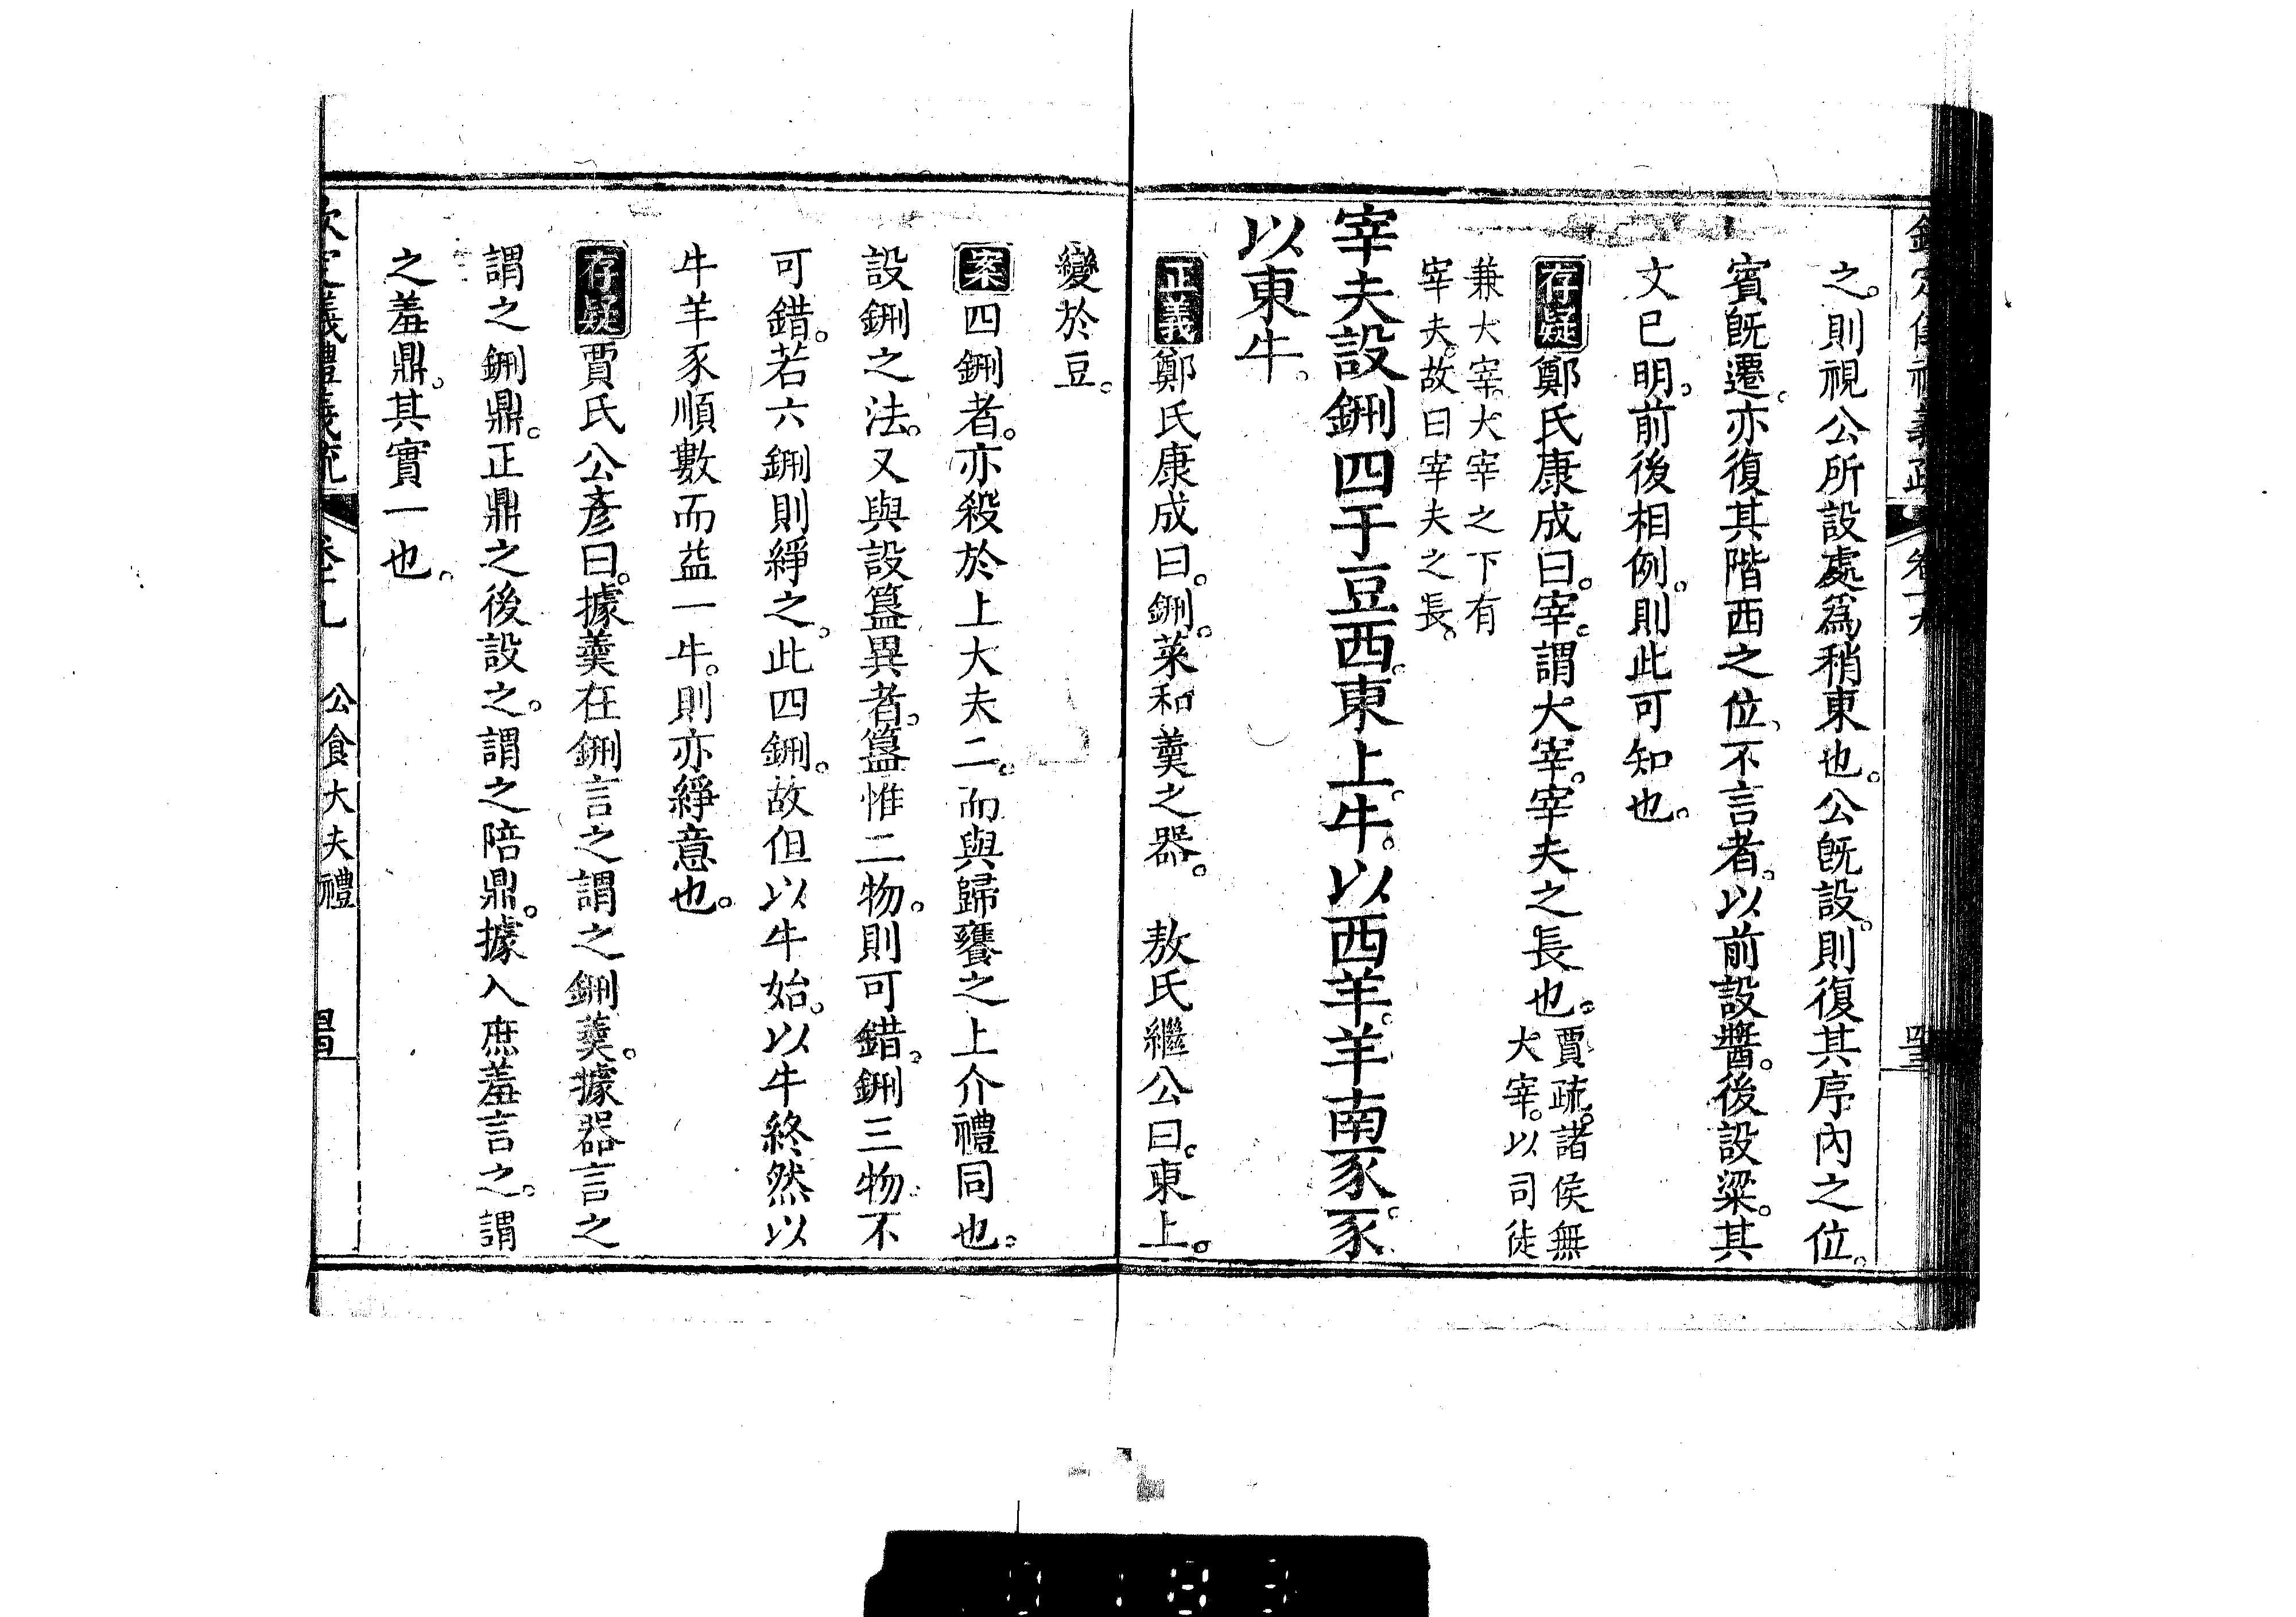 之。則視公所設處爲稍東也。公旣設。則復其序內之位。
賓旣遷。亦復其階西之位、不言者。以前設醬。後設粱。其
文已明。前後相例。則此可知也。
存疑 鄭氏康成曰。宰。謂大宰。宰夫之長也。賈疏。諸侯無
大宰。以司徒
兼大宰。大宰之下有
宰夫。故曰宰夫之長。
宰夫設鉶四于豆西。東上。牛。以西羊。羊南豕。豕
以東牛。
正義 鄭氏康成曰。鉶。菜和羹之器。 敖氏繼公曰。東上。
變於豆。
案 四鉶者。亦殺於上大夫二。而與歸饔之上介禮同也。
設鉶之法。又與設簋異者。簋惟二物。則可錯。鉶三物。不
可錯。若六鉶則綪之。此四鉶。故但以牛始。以牛終然以
牛羊豕順數而益一牛。則亦綪意也。
存疑 賈氏公彥曰。據羹在鉶言之謂之鉶羹。據器言之
謂之鉶鼎。正鼎之後設之。謂之陪鼎。據入庶羞言之。謂
之羞鼎。其實一也。
公食大夫禮